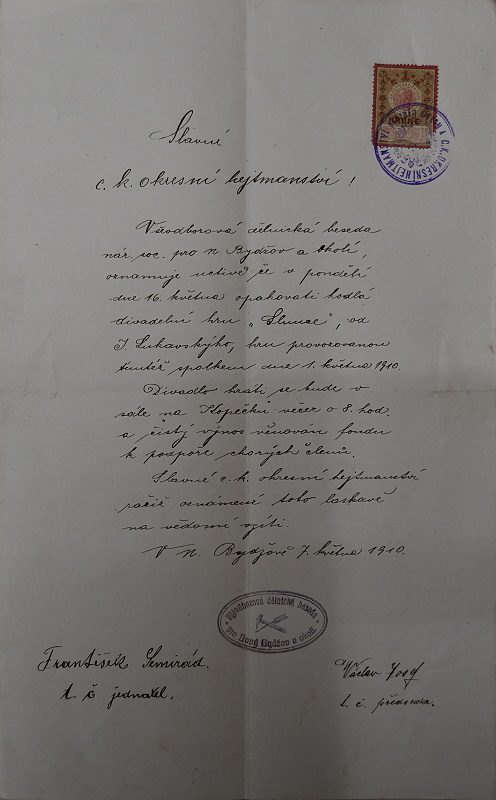 1
KRONE
C.K. OKRESNÍ HEJTMANSTVÍ
Slavné
c. k. okresní hejtmanství!
Všeodborová dělnická beseda
nár. soc. pro N. Bydžov a okolí,
oznamuje uctivě že v pondělí
dne 16. května opakovati hodlá
divadelní hru „Slunce", od
J. Lukavskýho, hru provozovanou
tímtéž spolkem dne 1. května 1910.
Divadlo hráti se bude v
sále na Kopečku večer o 8. hod.
a čistý výnos věnován fondu
k podpoře chorých členů.
Slavné c. k. okresní hejtmanství
račiž oznámení toto laskavě
na vědomí vzíti.
V N. Bydžově 7. května 1910.
Všeodborová dělnická beseda
pro Nový Bydžov a okolí.
František Semirád.
t. č. jednatel.
Václav Josef
t. č. předseda.